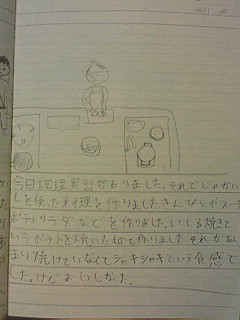 今日調理実習がありました。それでじゃがい
もを使った料理を作りました。きんぴらやスープ
ポテトサラダなどを作りました。いしる焼きと
いうポテトを焼いた物も作りました。それがあん
まり焼けていなくてシャキシャキという食感で
した。けどおいしかった。